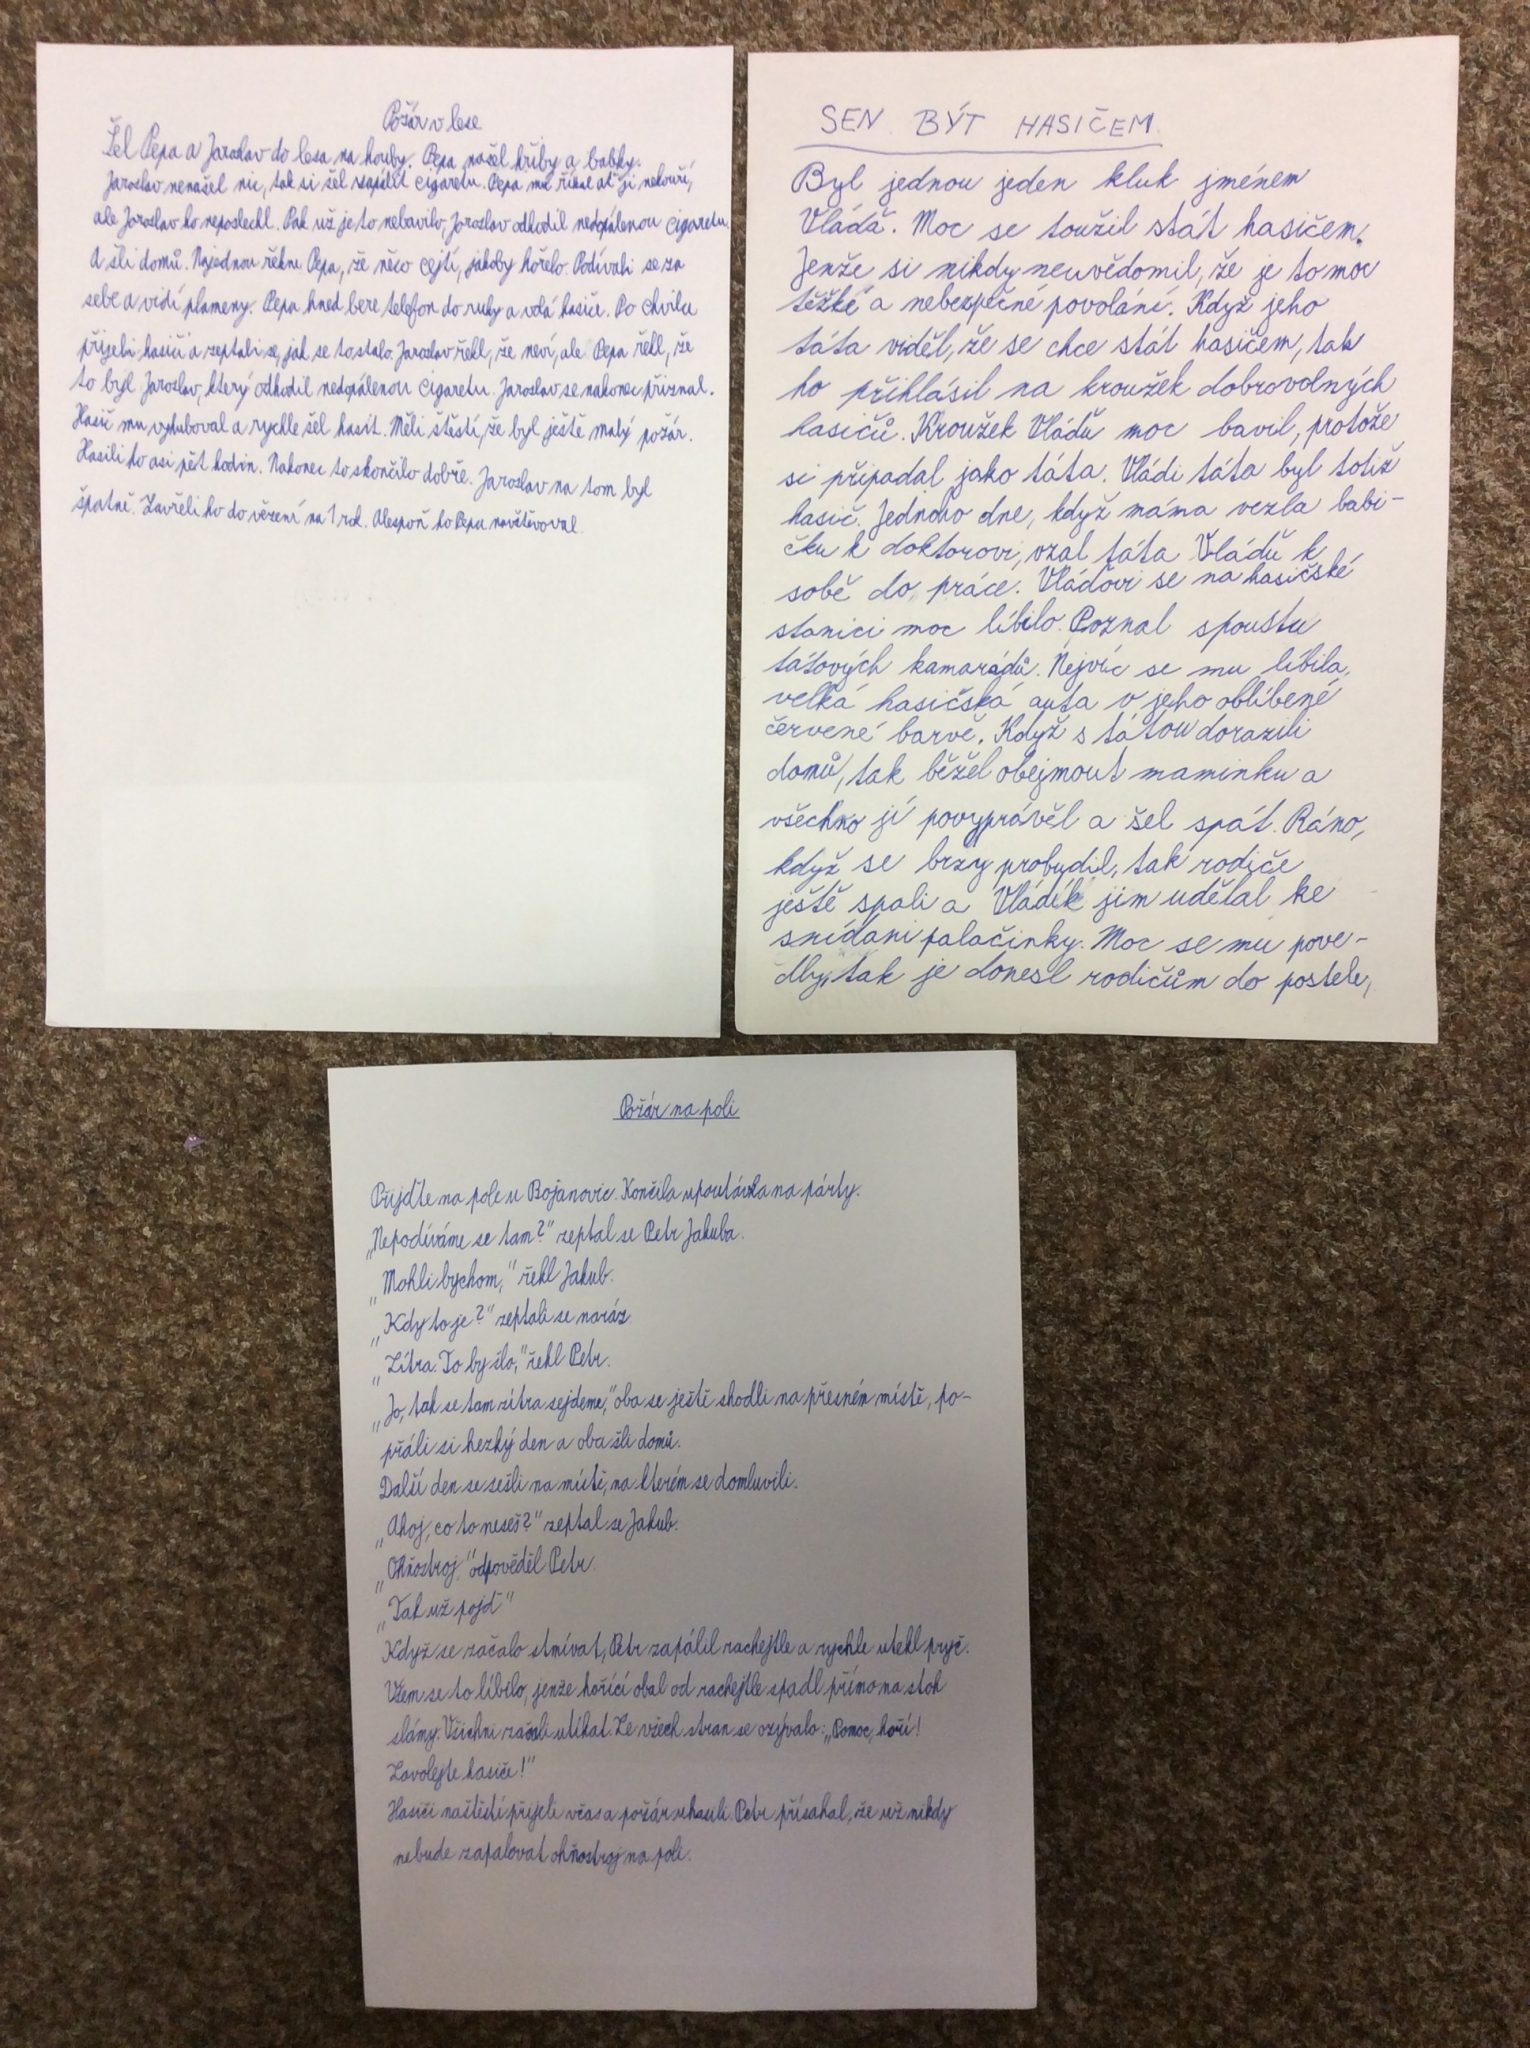 Požár v lese
Šel Pepa a Jaroslav do lesa na houby. Pepa našel hřiby a babky.
Jaroslav nenašel nic, tak si šel zapálit cigaretu. Pepa mu říkal ať ji nekouří,
ale Jaroslav ho neposlechl. Pak už je to nebavilo, Jaroslav odhodil nedopálenou cigaretu.
A šli domů. Najednou řekne Pepa, že něco cejtí, jakoby hořelo. Podívali se za
sebe a vidí plameny. Pepa hned bere telefon do ruky a volá hasiče. Po chvilce
přijeli hasiči a zeptali se, jak se to stalo. Jaroslav řekl, že neví, ale Pepa řekl, že
to byl Jaroslav, který odhodil nedopálenou cigaretu. Jaroslav se nakonec přiznal.
Hasič mu vyhuboval a rychle šel hasit. Měli štěstí, že byl ještě malý požár.
Hasili ho asi pět hodin. Nakonec to skončilo dobře. Jaroslav na tom byl
špatně. Zavřeli ho do vězení na 1 rok. Alespoň ho Pepa navštěvoval.
SEN BÝT HASIČEM.
Byl jednou jeden kluk jménem
Vláďa. Moc se toužil stát hasičem.
Jenže si nikdy neuvědomil, že je to moc
těžké a nebezpečné povolání. Když jeho
táta viděl, že se chce stát hasičem, tak
ho přihlásil na kroužek dobrovolných
hasičů. Kroužek Vláďu moc bavil, protože
si připadal jako táta. Vládi táta byl totiž
hasič. Jednoho dne, když máma vezla babi-
čku k doktorovi, vzal táta Vláďu k
sobě do práce. Vláďovi se na hasičské
stanici moc líbilo. Poznal spoustu
tátových kamarádů. Nejvíc se mu líbila,
velká hasičská auta v jeho oblíbené
červené barvě. Když s tátou dorazili
domů, tak běžel obejmout maminku a
všechno jí povyprávěl a šel spát. Ráno,
když se brzy probudil, tak rodiče
ještě spali a Vládík jim udělal ke
snídani palačinky. Moc se mu pove-
dly, tak je donesl rodičům do postele,
Požár na poli
Přijďte na pole u Bojanovic. Končila upoutávka na párty.
„Nepodíváme se tam?" zeptal se Petr Jakuba.
„Mohli bychom," řekl Jakub.
„Kdy to je?" zeptali se naráz.
„Zítra. To by šlo," řekl Petr.
„Jo, tak se tam zítra sejdeme," oba se ještě shodli na přesném místě, po-
přáli si hezký den a oba šli domů.
Další den se sešli na místě, na kterém se domluvili.
„Ahoj, co to neseš?" zeptal se Jakub.
„Ohňostroj," odpověděl Petr.
„Tak už pojď"
Když se začalo stmívat, Petr zapálil rachejtle a rychle utekl pryč.
Všem se to líbilo, jenže hořící obal od rachejtle spadl přímo na stoh
slámy. Všichni začali utíkat. Ze všech stran se ozývalo: „Pomoc, hoří!
Zavolejte hasiče!"
Hasiči naštěstí přijeli včas a požár uhasili. Petr přísahal, že už nikdy
nebude zapalovat ohňostroj na poli.